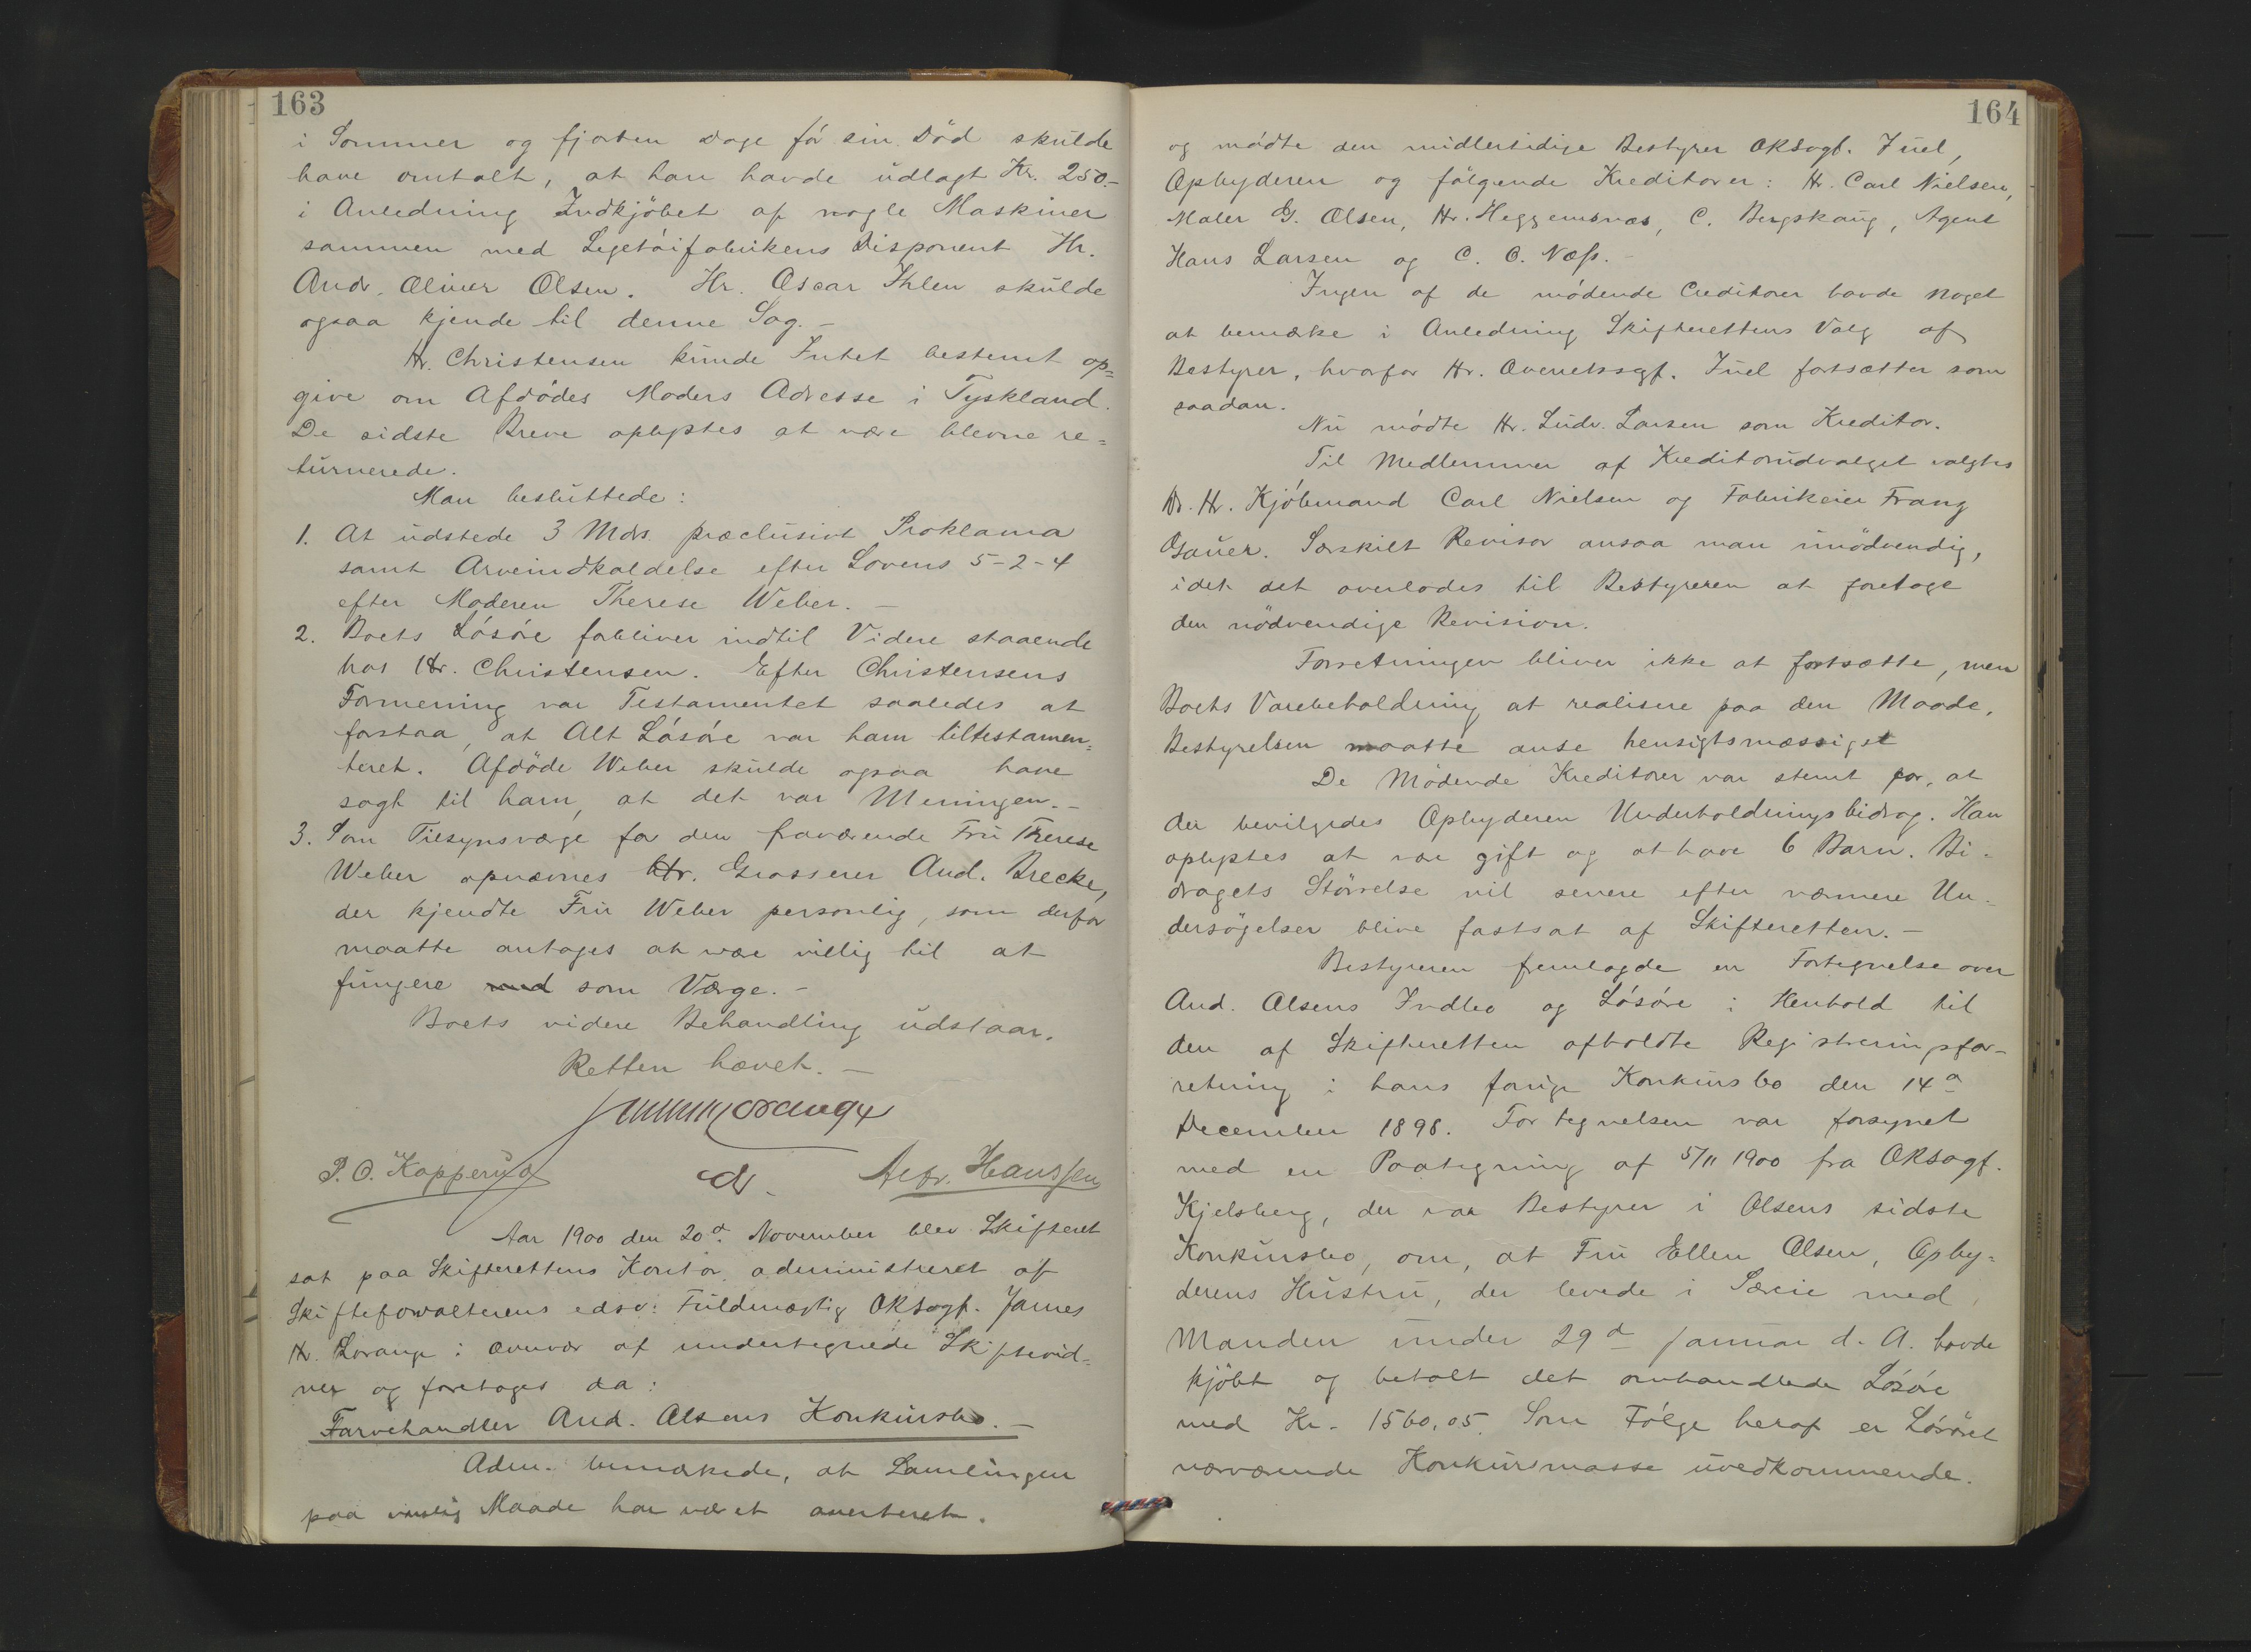 163
i Sommer og fjorten Dage før sin Död skulde
have omtalt, at han havde udlagt Kr. 250.-
i Anledning Indkjöbet af nogle Maskiner
sammen med Legetöifabrikens Disponent Hr.
Andr. Oliver Olsen. Hr. Oscar Ihlen skulde
ogsaa kjende til denne Sag. -
Hr. Christensen kunde Intet bestemt op=
give om Afdödes Moders Adresse i Tyskland.
De sidste Breve oplystes at være blevne re=
turnerede.
Man besluttede:
1. At udstede 3 Mdrs præclusivt Proklama
samt Arveindkaldelse efter Lovens 5-2-4
efter Moderen Therese Weber. -
2. Boets Lösöre forbliver indtil Videre staaende
hos Hr. Christensen. Efter Christensens
Formening var Testamentet saaledes at
forstaa, at Alt Lösöre var ham tiltestamen=
teret. Afdöde Weber skulde ogsaa have
sagt til ham, at det var Meningen. -
3. Som Tilsynsværge for den fraværende Fru Therese
Weber opnævnes Hr. Grosserer And. Brecke,
der kjendte Fru Weber personlig, som derfor
maatte antages at være villig til at
fungere som Værge. -
Boets videre Behandling udstaar.
Retten hævet. -
P. O. Kopperud
Alfr. Hanssen
Aar 1900 den 20d. November blev Skifteret
sat paa Skifterettens Kontor, administreret af
Skifteforvalterens edsv: Fuldmægtig ORSagf. James
H. Lorange i Overvær af undertegnede Skiftevid=
ner og foretoges da:
Farvehandler And. Olsens Konkursbo. -
Adm. bemærkede, at Samlingen
paa lovlig Maade har været averteret.
164
og mödte den midlertidige Bestyrer ORSagf. Juel,
Opbyderen og fölgende Kreditorer: Hr. Carl Nielsen,
Maler G. Olsen, Hr. Heggemsnæs, C. Bergskaug, Agent
Hans Larsen og C. O. Næss. -
Ingen af de mödende Creditorer havde noget
at bemærke i Anledning Skifterettens Valg af
Bestyrer, hvorfor Hr. Overretssgf. Juel fortsætter som
saadan.
Nu mödte Hr. Ludv. Larsen som Kreditor.
Til Medlemmer af Kreditorudvalget valgtes
Dr. Hr. Kjöbmand Carl Nielsen og Fabrikeier Franz
Gauer. Særskilt Revisor ansaa man unödvendig,
idet det overlodes til Bestyreren at foretage
den nödvendige Revision.
Forretningen bliver ikke at fortsætte, men
Boets Varebeholdning at realisere paa den Maade,
Bestyrelsen maatte anse hensigtsmæssigst
De Mödende Kreditorer var stemt for, at
der bevilgedes Opbyderen Underholdningsbidrag. Han
oplystes at være gift og at have 6 Barn. Bi-
dragets Störrelse vil senere efter nærmere Un-
dersögelser blive fastsat af Skifteretten. -
Bestyreren fremlagde en Fortegnelse over
And. Olsens Indbo og Lösöre i Henhold til
den af Skifteretten afholdte Registreringsfor-
retning i hans forrige Konkursbo den 14d
December 1898. Fortegnelsen var forsynet
med en Paategning af 5/11 1900 fra ORSagf.
Kjelsberg, der var Bestyrer i Olsens sidste
Konkursbo, om, at Fru Ellen Olsen, Opby=
derens Hustru, der levede i Særeie med
Manden under 29d Januar d. A. havde
kjöbt og betalt det omhandlede Lösöre
med Kr. 1560,05. Som Fölge heraf er Lösöret
nærværende Konkursmasse uvedkommende.